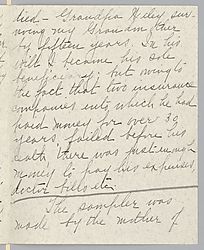 died - Grandpa Wiley sur-
viving my Grandmother
by fifteen years. In his
will I became his sole
beneficiary; but owing to
the fact that two insurance
companies into which he had
paid money for over 30
years, failed before his
death, there was just enough
money to pay his expenses
doctor bills etc.
The sampler was
made by the mother of